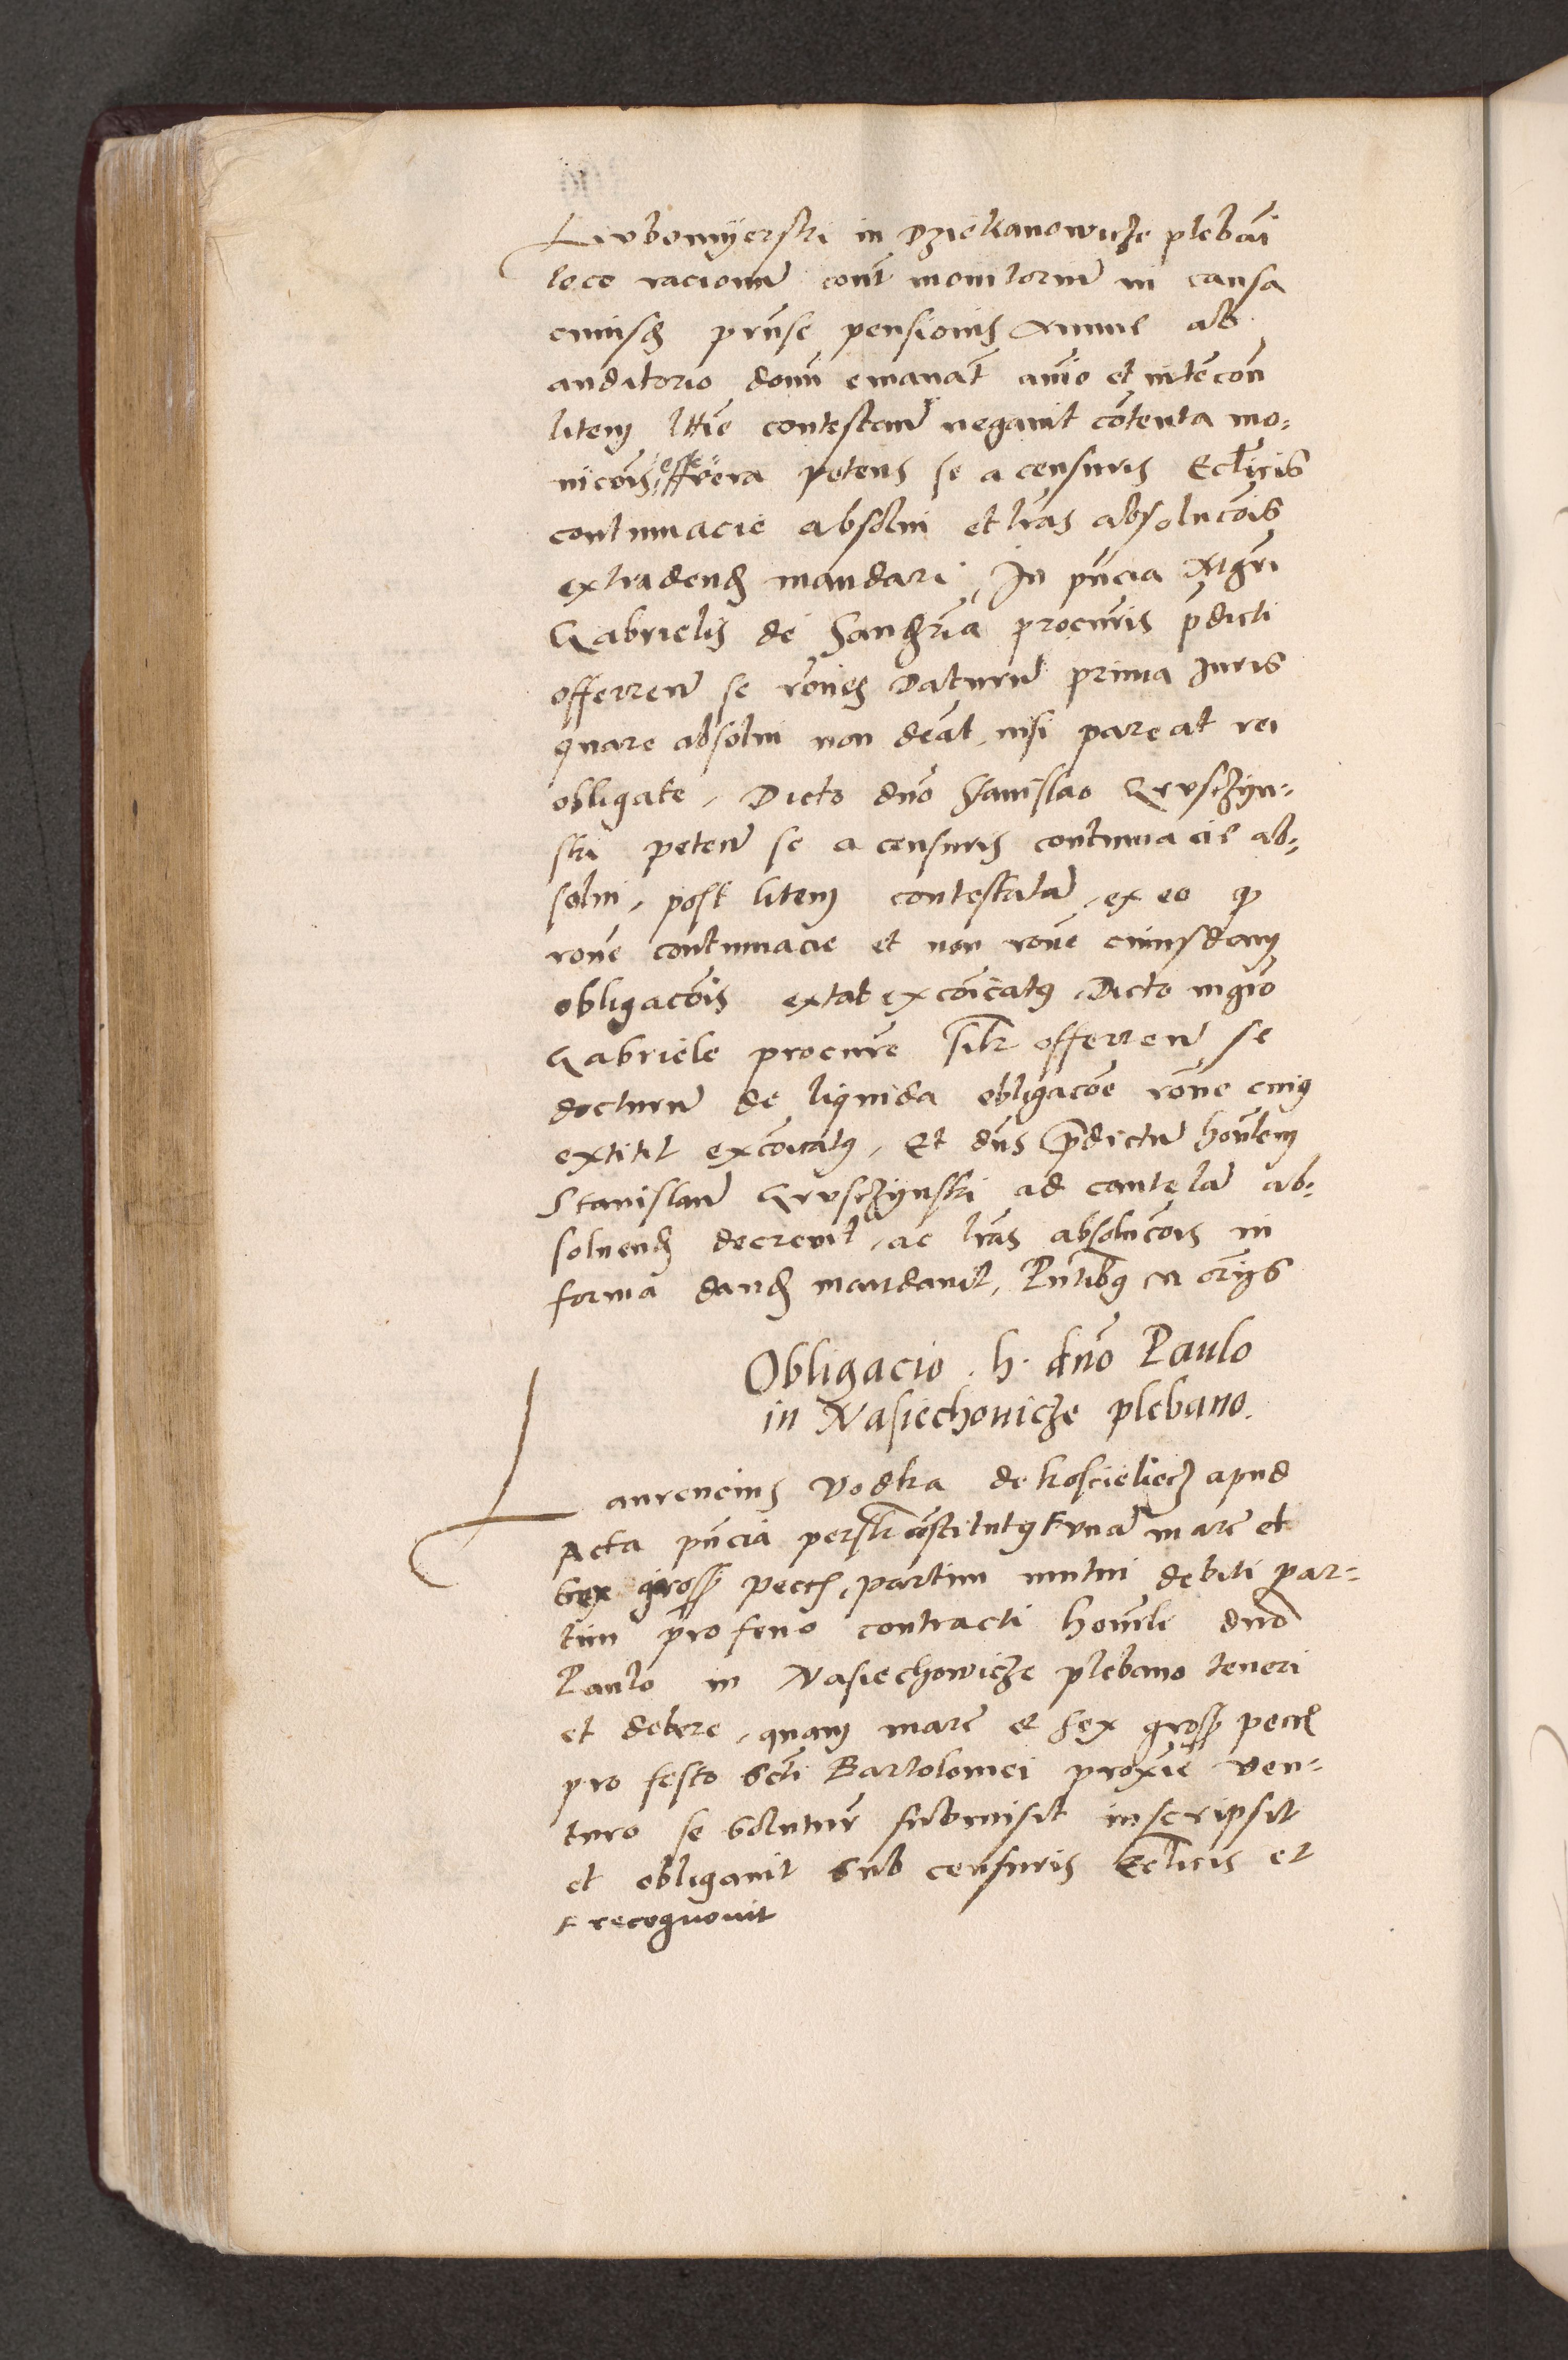 Lubomÿerski in Dziekanowicze plebani
loco racionum cont monitorium in causa
cuiusd prnse pensionis Annue ab
auditorio domi emanat animo et intencon
litem lttime contestandi negavit contenta mo-
nicois esse vera petens se a censuris Eclicis
contumacie absolvi et lras absolucois
extradend mandari, In pncia Mgri
Gabrielis de Sandzia procuris pdicti
offerren se rones daturum prima Juris
quare absolvi non deat, nisi pareat rei
obligate, Dicto dno Stanislao Gruschyn-
ski peten se a censuris contumacie ab-
solvi, post litem contestatam, ex eo q
rone contumacie et non rone cuiusdam
obligacois extat excoicatus, Dicto mgro
Gabriele procure silr offerren se
docturum de liquida obligacoe rone cuius
extitit excoicatus, Et dns predictum honlem
Stanislaum Gruschynski ad cautelam ab-
solvend decrevit, ac lras absolucois in
forma dand mandavit, Pntibus ut orijs
Obligacio h. dno Paulo
in Nasiechovicze plebano.
Laurencius Vodka de koscieliecz apud
Acta pncia personlr constitutus F unam marc et
sex gross pecc, partim mutui debiti par-
tim pro feno contracti honrle dno
Paulo in Nasiechowicze plebano teneri
et debere, quam marc et sex gross pecc
pro festo Scti Bartolomei proxie ven-
turo se soluturum submisit inscripsit
et obligavit sub censuris Ecclicis et
F recognovit